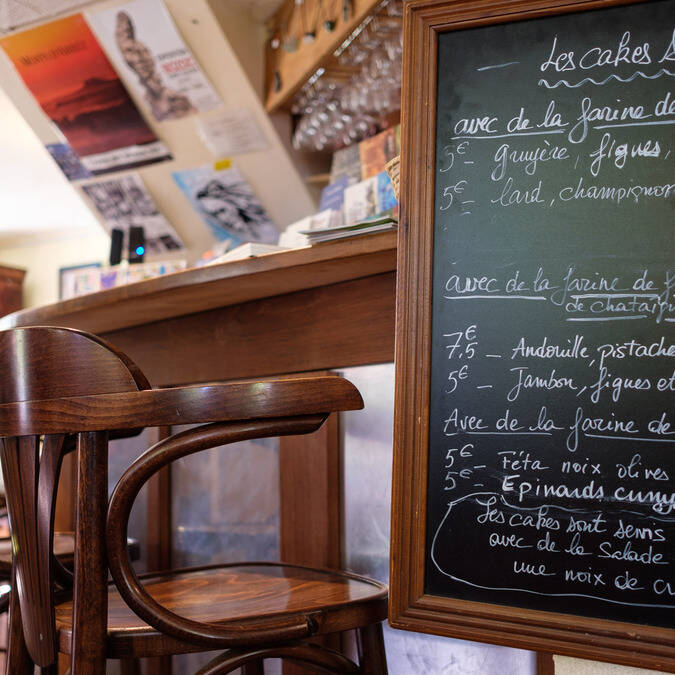 Les cakes S
avec de la farine de
5€ - Gruyère, figues,
5€ - Lard, champignon
avec de la farine de f
de chataig
7€
7,5 - Andouille, pistache
5€ - Jambon, figues et
Avec de la farine de
5€ - Féta noix olives
5€ - Epinards curry
Les cakes sont servis
avec de la Salade
une noix de